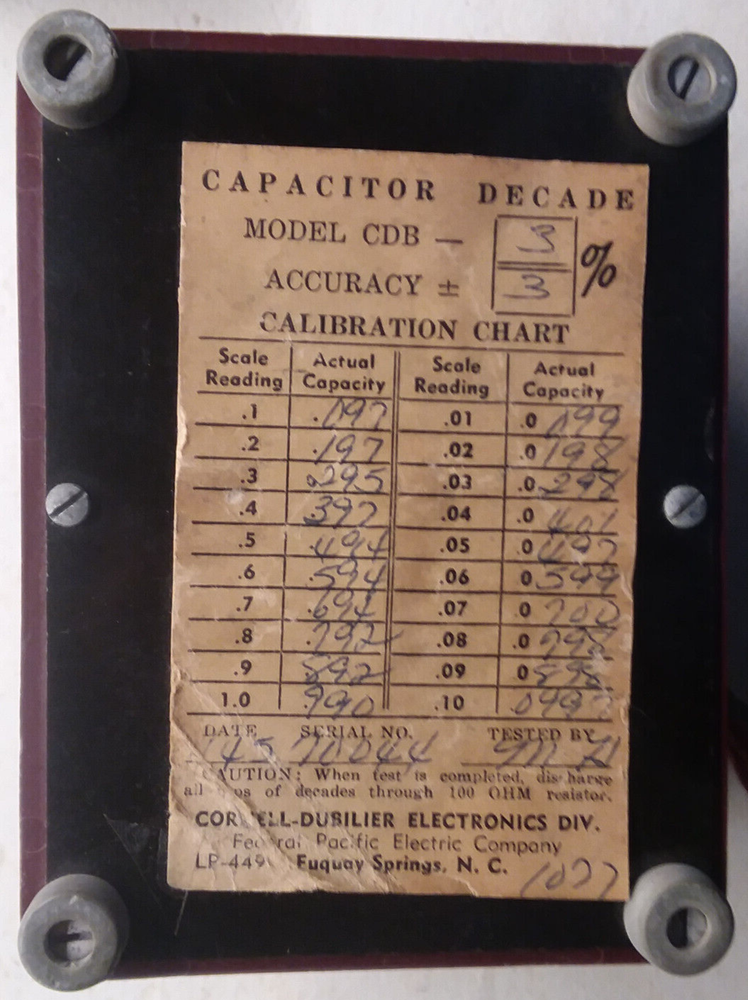 CAPACITOR DECADE
MODEL CDB — 3
ACCURACY ± 3 %
CALIBRATION CHART
Scale Reading Actual Capacity Scale Reading Actual Capacity
.1 .097 .01 .0 099
.2 .197 .02 .0 198
.3 .295 .03 .0 298
.4 397 .04 .0 401
.5 .494 .05 .0 497
.6 .594 .06 0 599
.7 .694 .07 0 700
.8 .792 .08 .0 798
.9 892 .09 0 898
1.0 .990 .10 .0997
DATE SERIAL NO. TESTED BY
145 70044
CAUTION: When test is completed, discharge
all of decades through 100 OHM resistor.
CORNELL-DUBILIER ELECTRONICS DIV.
Federal Pacific Electric Company
LP-449 Fuquay Springs, N. C.
1027